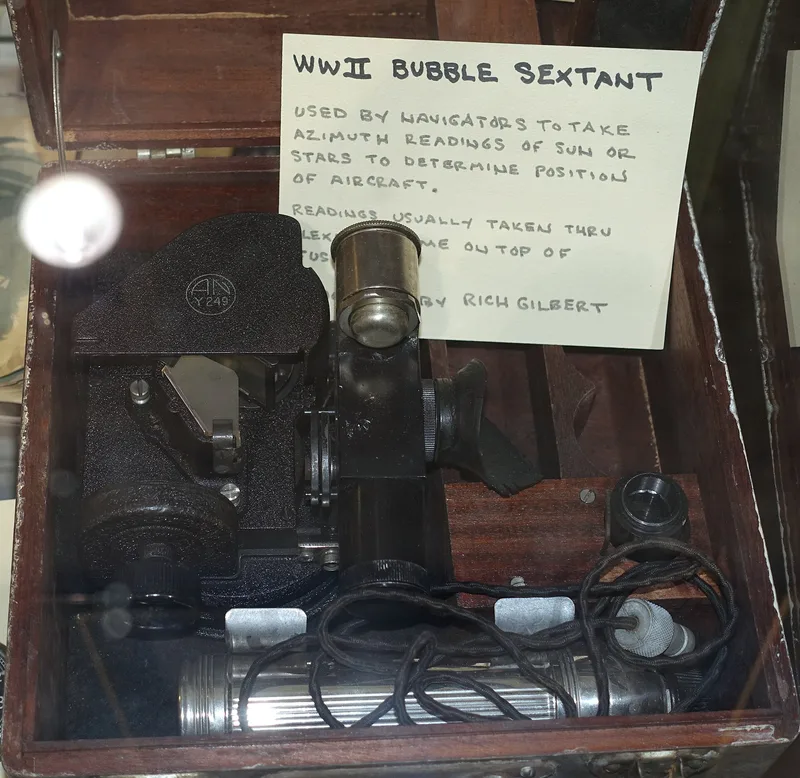 WWII BUBBLE SEXTANT
USED BY NAVIGATORS TO TAKE
AZIMUTH READINGS OF SUN OR
STARS TO DETERMINE POSITION
OF AIRCRAFT.
READINGS USUALLY TAKEN THRU
ON TOP OF
BY RICH GILBERT
AN
Y249